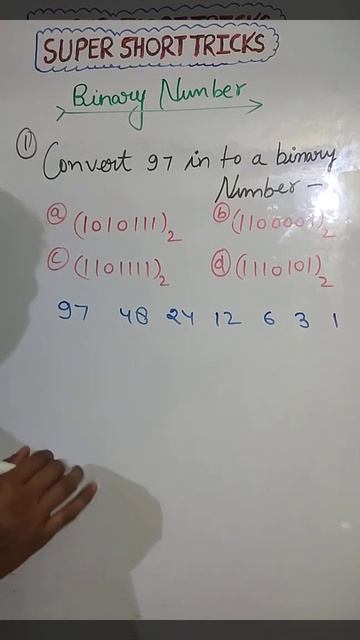 SUPER SHORT TRICKS
Binary Number
① Convert 97 in to a binary
Number -
ⓐ (1010111)₂ ⓑ (1100001)₂
ⓒ (1101111)₂ ⓓ (1110101)₂
97 48 24 12 6 3 1